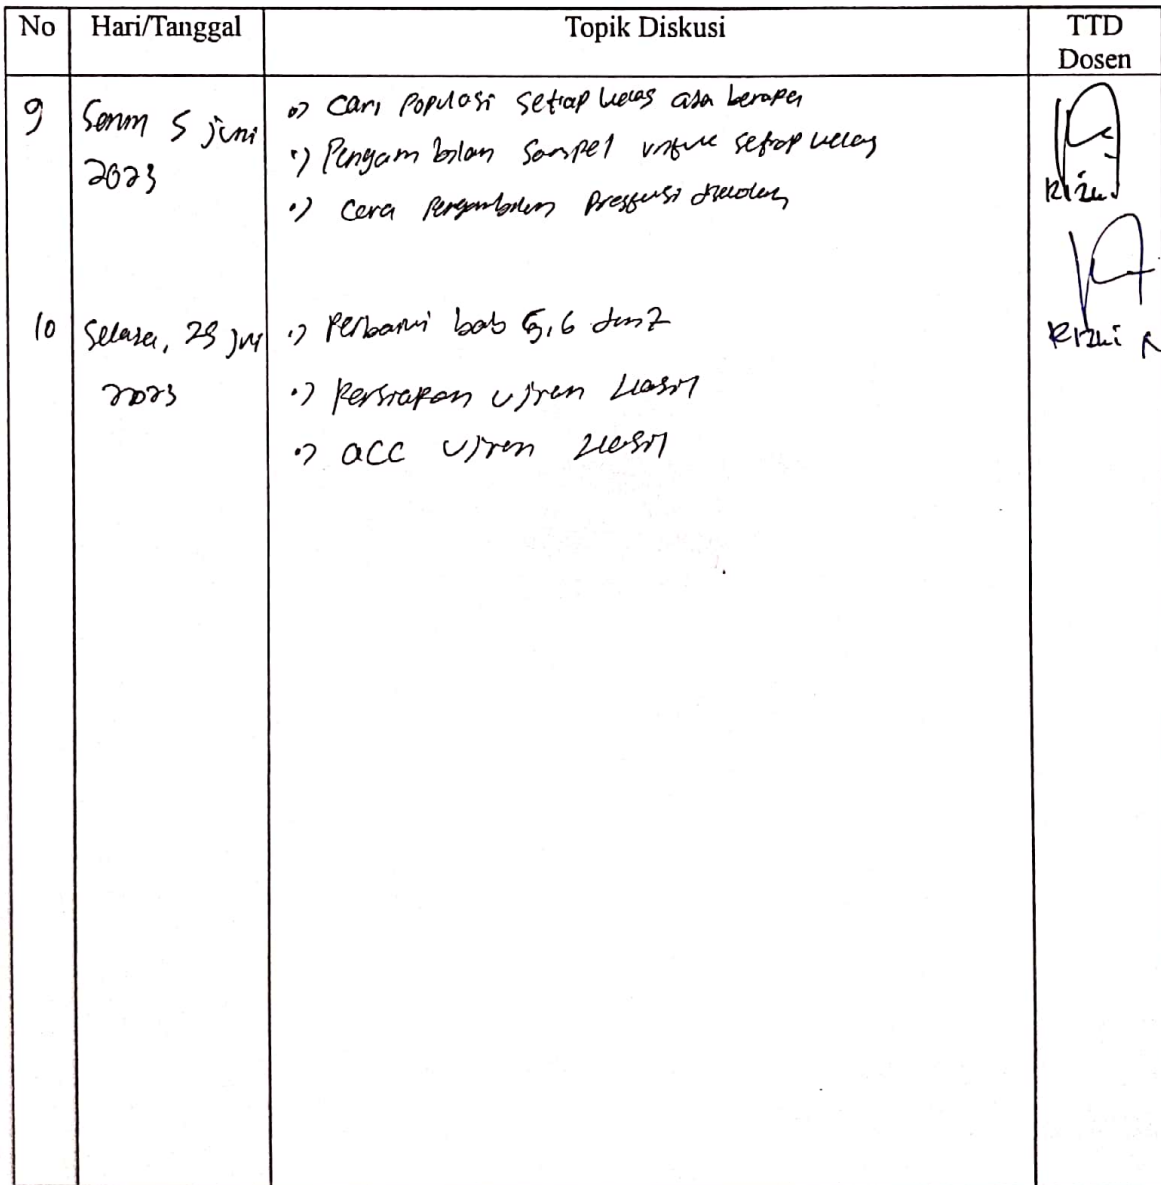 No Hari/Tanggal Topik Diskusi TTD
Dosen
9 Senin 5 juni
2023
•) Cari Populasi setiap kelas ada berapa
•) Pengambilan sampel untuk setiap kelas
•) Cara Pengambilan
Rizki
10 Selasa, 2023
•) Perbarui bab 5,6 dan 7
•) Persiapan ujian Hasil
•) acc ujian Hasil
Rizki A